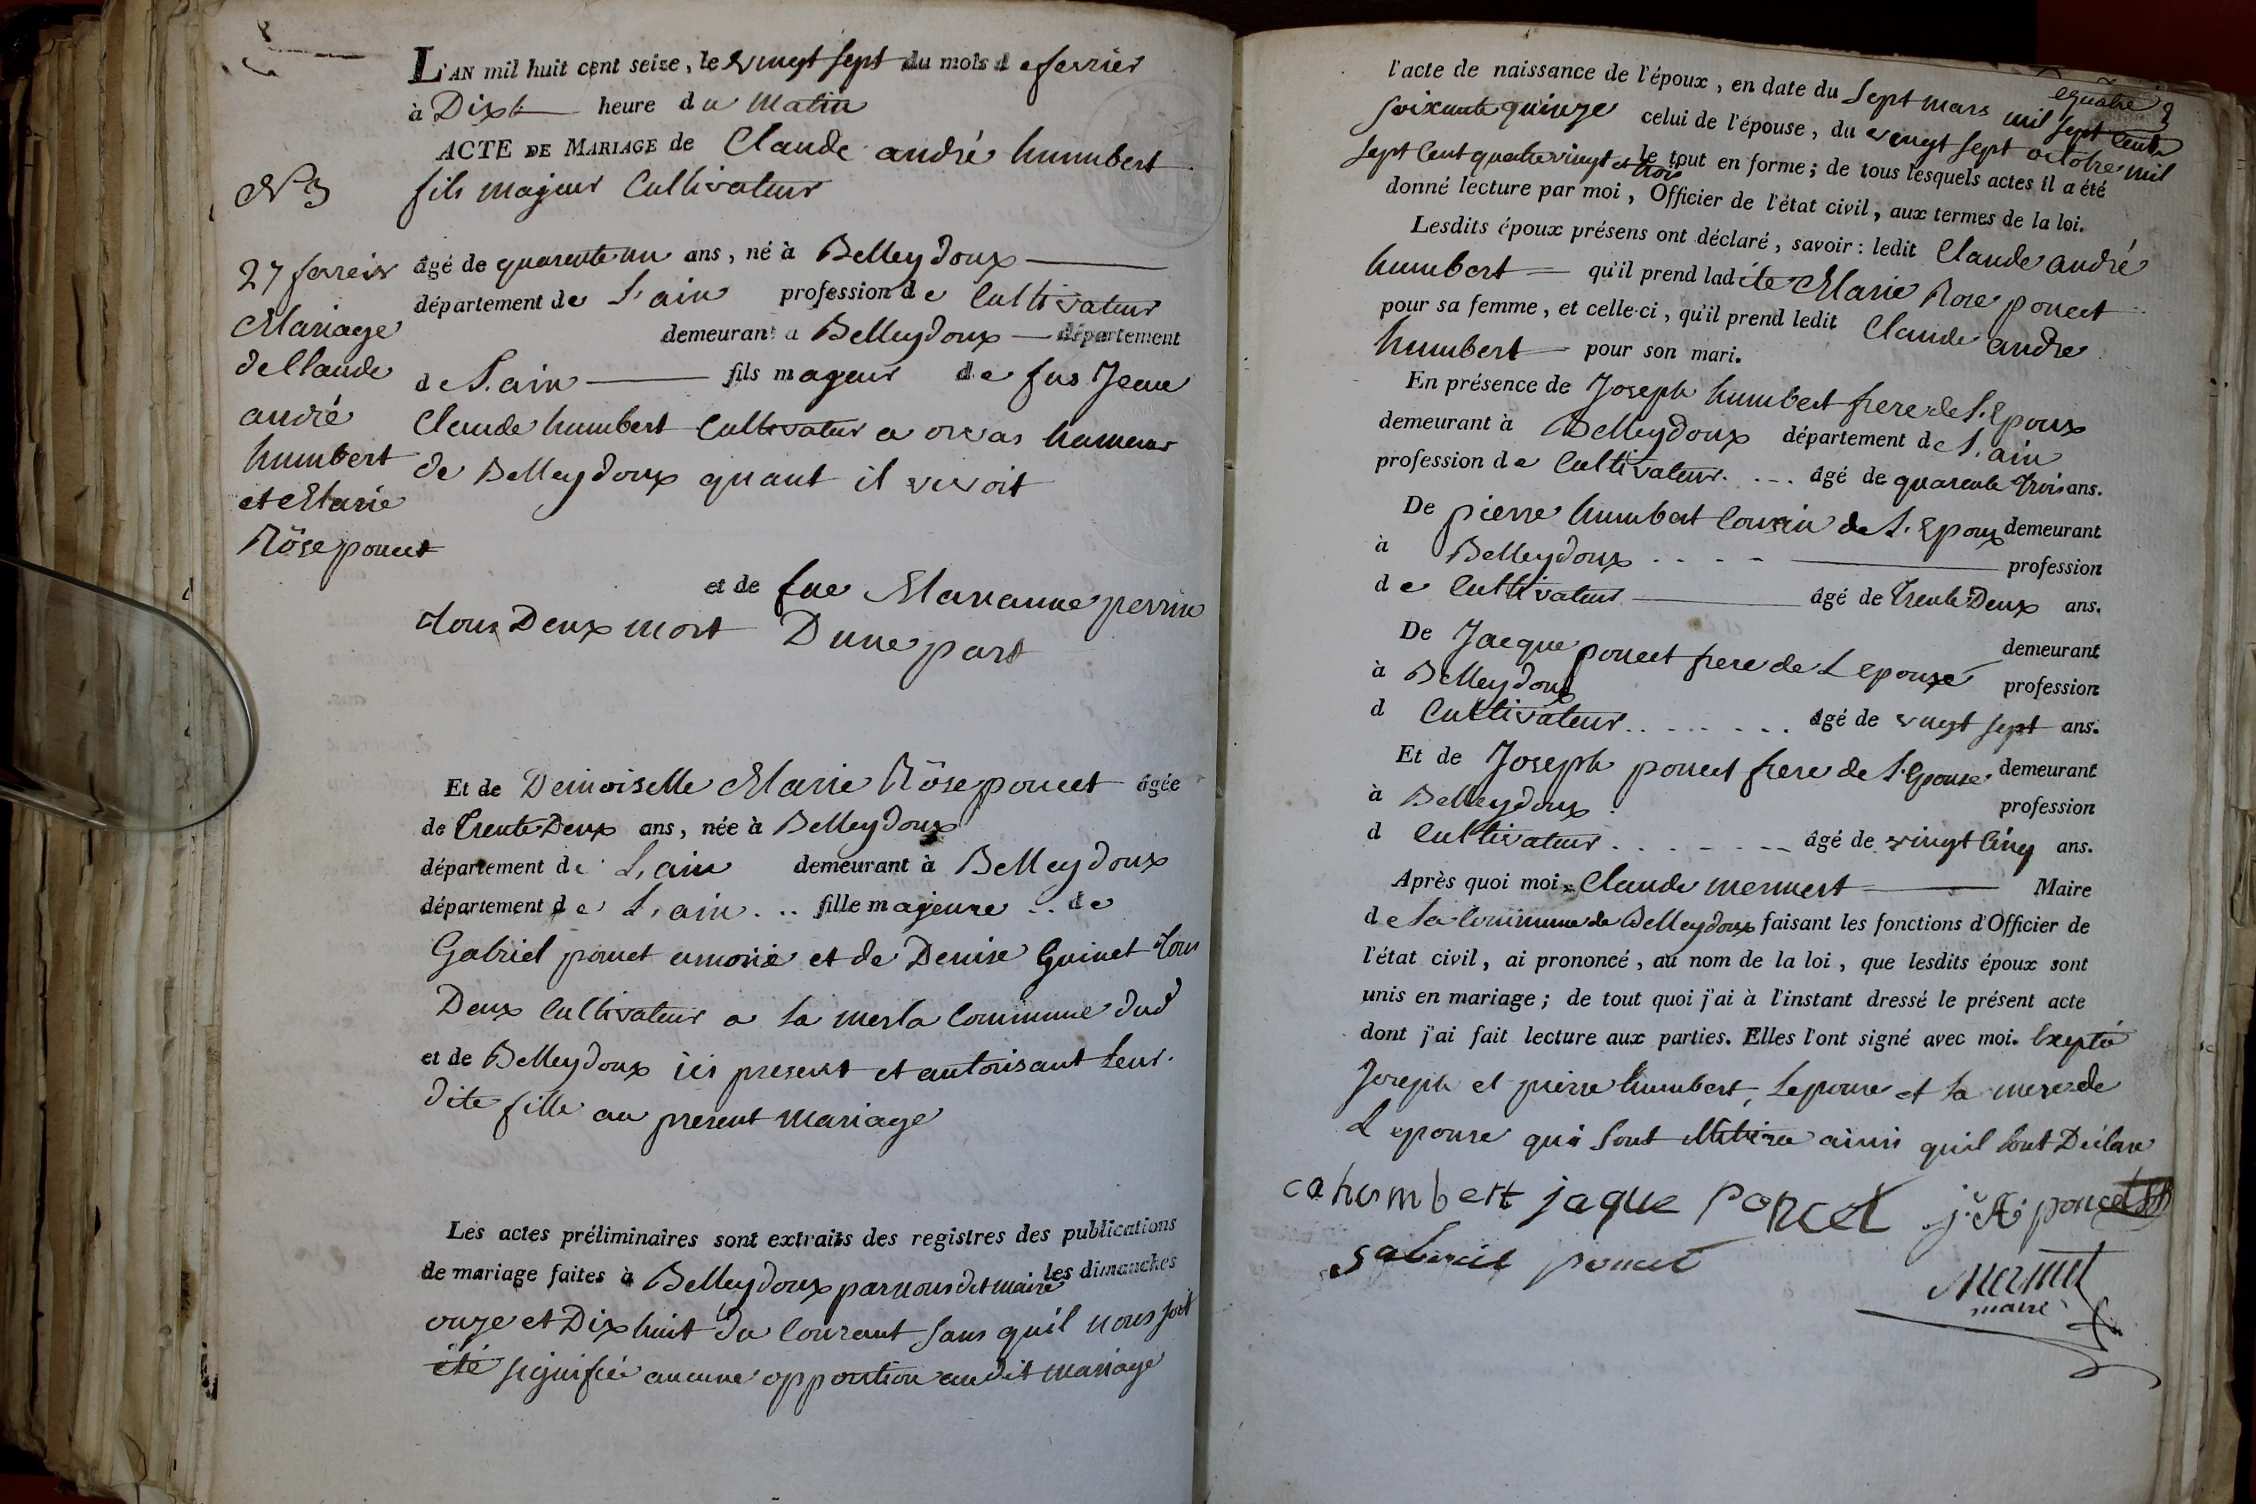 L'AN mil huit cent seize, le vingt sept du mois de fevrier
à Dix heure du Matin
ACTE DE MARIAGE de Claude andré humbert
fils majeur Cultivateur
âgé de quarente un ans, né à Belleydoux
département de L'ain profession de Cultivateur
demeurant a Belleydoux département
de L'ain fils mageur de fus Jean
Claude humbert Cultivateur a orvas hameau
de Belleydoux quant il vivoit
et de fue Marianne perrin
tous Deux mort Dune part
N° 3
27 fevreir
Mariage
de Claude
andré
humbert
et Marie
Röse poncet
Et de Demoiselle Marie Röse poncet âgée
de Trente Deux ans, née à Belleydoux
département de L'ain demeurant à Belleydoux
département de L'ain fille mageure de
Gabriel poncet et de Denise Guinet tous
Deux Cultivateur a la merla Commune dud
et de Belleydoux ici present et autorisant leur
dite fille au present mariage
Les actes préliminaires sont extraits des registres des publications
de mariage faites à Belleydoux par nous dit maire les dimanches
onze et Dix huit du Courant sans quil nous soit
été signifié aucune oppotition audit mariage
l'acte de naissance de l'époux, en date du Sept mars mil sept Cent
soixante quinze celui de l'épouse, du vingt sept octobre mil
sept Cent quatre vingt et trois le tout en forme; de tous lesquels actes il a été
donné lecture par moi, Officier de l'état civil, aux termes de la loi.
Lesdits époux présens ont déclaré, savoir: ledit Claude andré
humbert qu'il prend ladite Marie Rose poncet
pour sa femme, et celle-ci, qu'il prend ledit Claude andre
humbert pour son mari.
En présence de Joseph humbert frere de L'Epoux
demeurant à Belleydoux département de L'ain
profession de Cultivateur âgé de quarente trois ans.
De pierre humbert Cousin de L'Epoux demeurant
à Belleydoux profession
de Cultivateur âgé de Trente Deux ans.
De Jacque poncet frere de Lepouse demeurant
à Belleydoux profession
d Cultivateur âgé de vingt sept ans.
Et de Joseph poncet frere de L'Epouse demeurant
à Belleydoux profession
d Cultivateur âgé de vingt Cinq ans.
Après quoi moi Claude mermet Maire
de La Commune de Belleydoux faisant les fonctions d'Officier de
l'état civil, ai prononcé, au nom de la loi, que lesdits époux sont
unis en mariage; de tout quoi j'ai à l'instant dressé le présent acte
dont j'ai fait lecture aux parties. Elles l'ont signé avec moi. Exepté
Joseph et pierre humbert, Lepouse et la mere de
Lepouse qui sont ainsi quil lont Declare
ca humbert jaque Poncet j. poncet
gabriel poncet
Mermet
maire